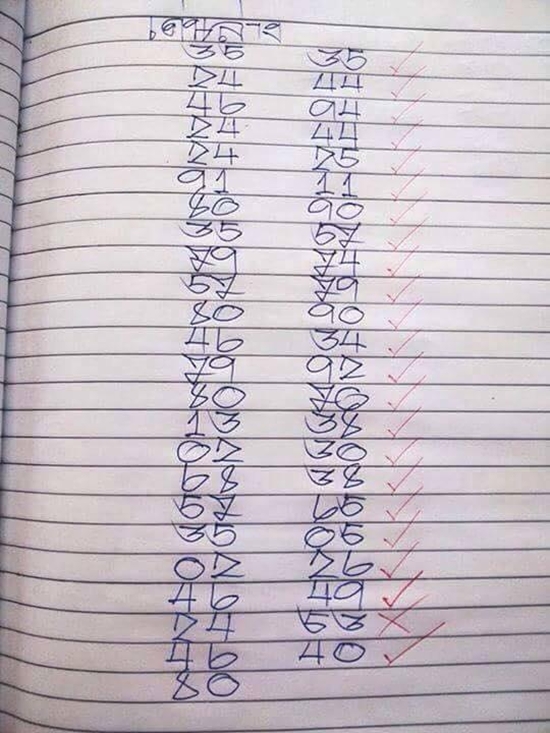 35 35 ✓
24 44 ✓
46 94 ✓
24 44 ✓
24 25 ✓
91 11 ✓
80 90 ✓
35 57 ✓
79 74 ✓
57 79 ✓
80 90 ✓
46 34 ✓
79 92 ✓
80 76 ✓
13 38 ✓
02 30 ✓
68 38 ✓
57 65 ✓
35 05 ✓
02 26 ✓
46 49 ✓
24 53 ✗
46 40 ✓
80